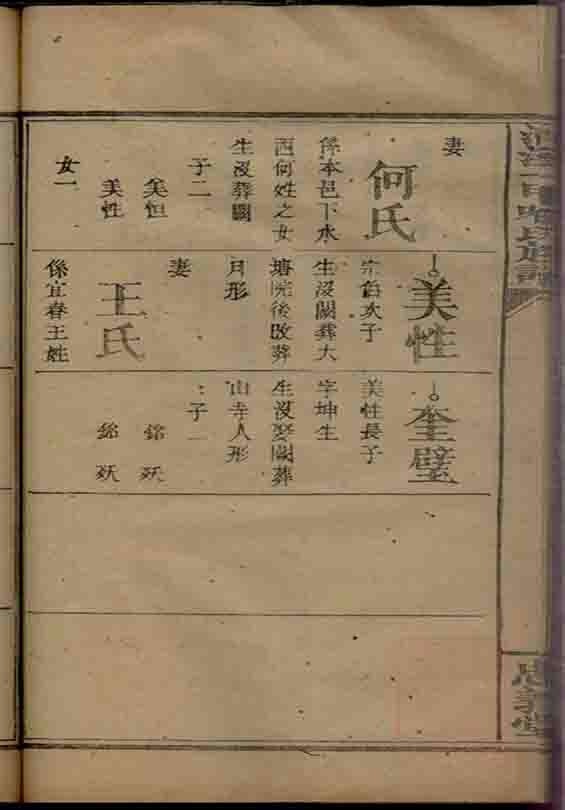 妻
何氏
係本邑下水
西何姓之女
生沒葬闕
子二
美恒
美性
女一
美性
次子
生沒闕葬大
塘院後改葬
月形
妻
王氏
係宜春王姓
奎璧
美性長子
字坤生
生沒娶闕葬
山寺人形
子二
銘
銘
忠義堂